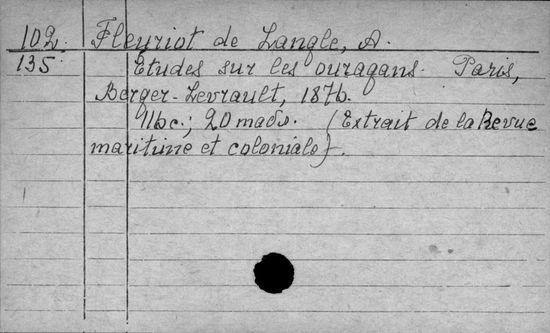 102. Fleuriot de Langle, A.
135 Etudes sur les ouragans. Paris,
Berger-Levrault, 1876.
116c.; 20 maps. (Extrait de la Revue
maritime et coloniale).